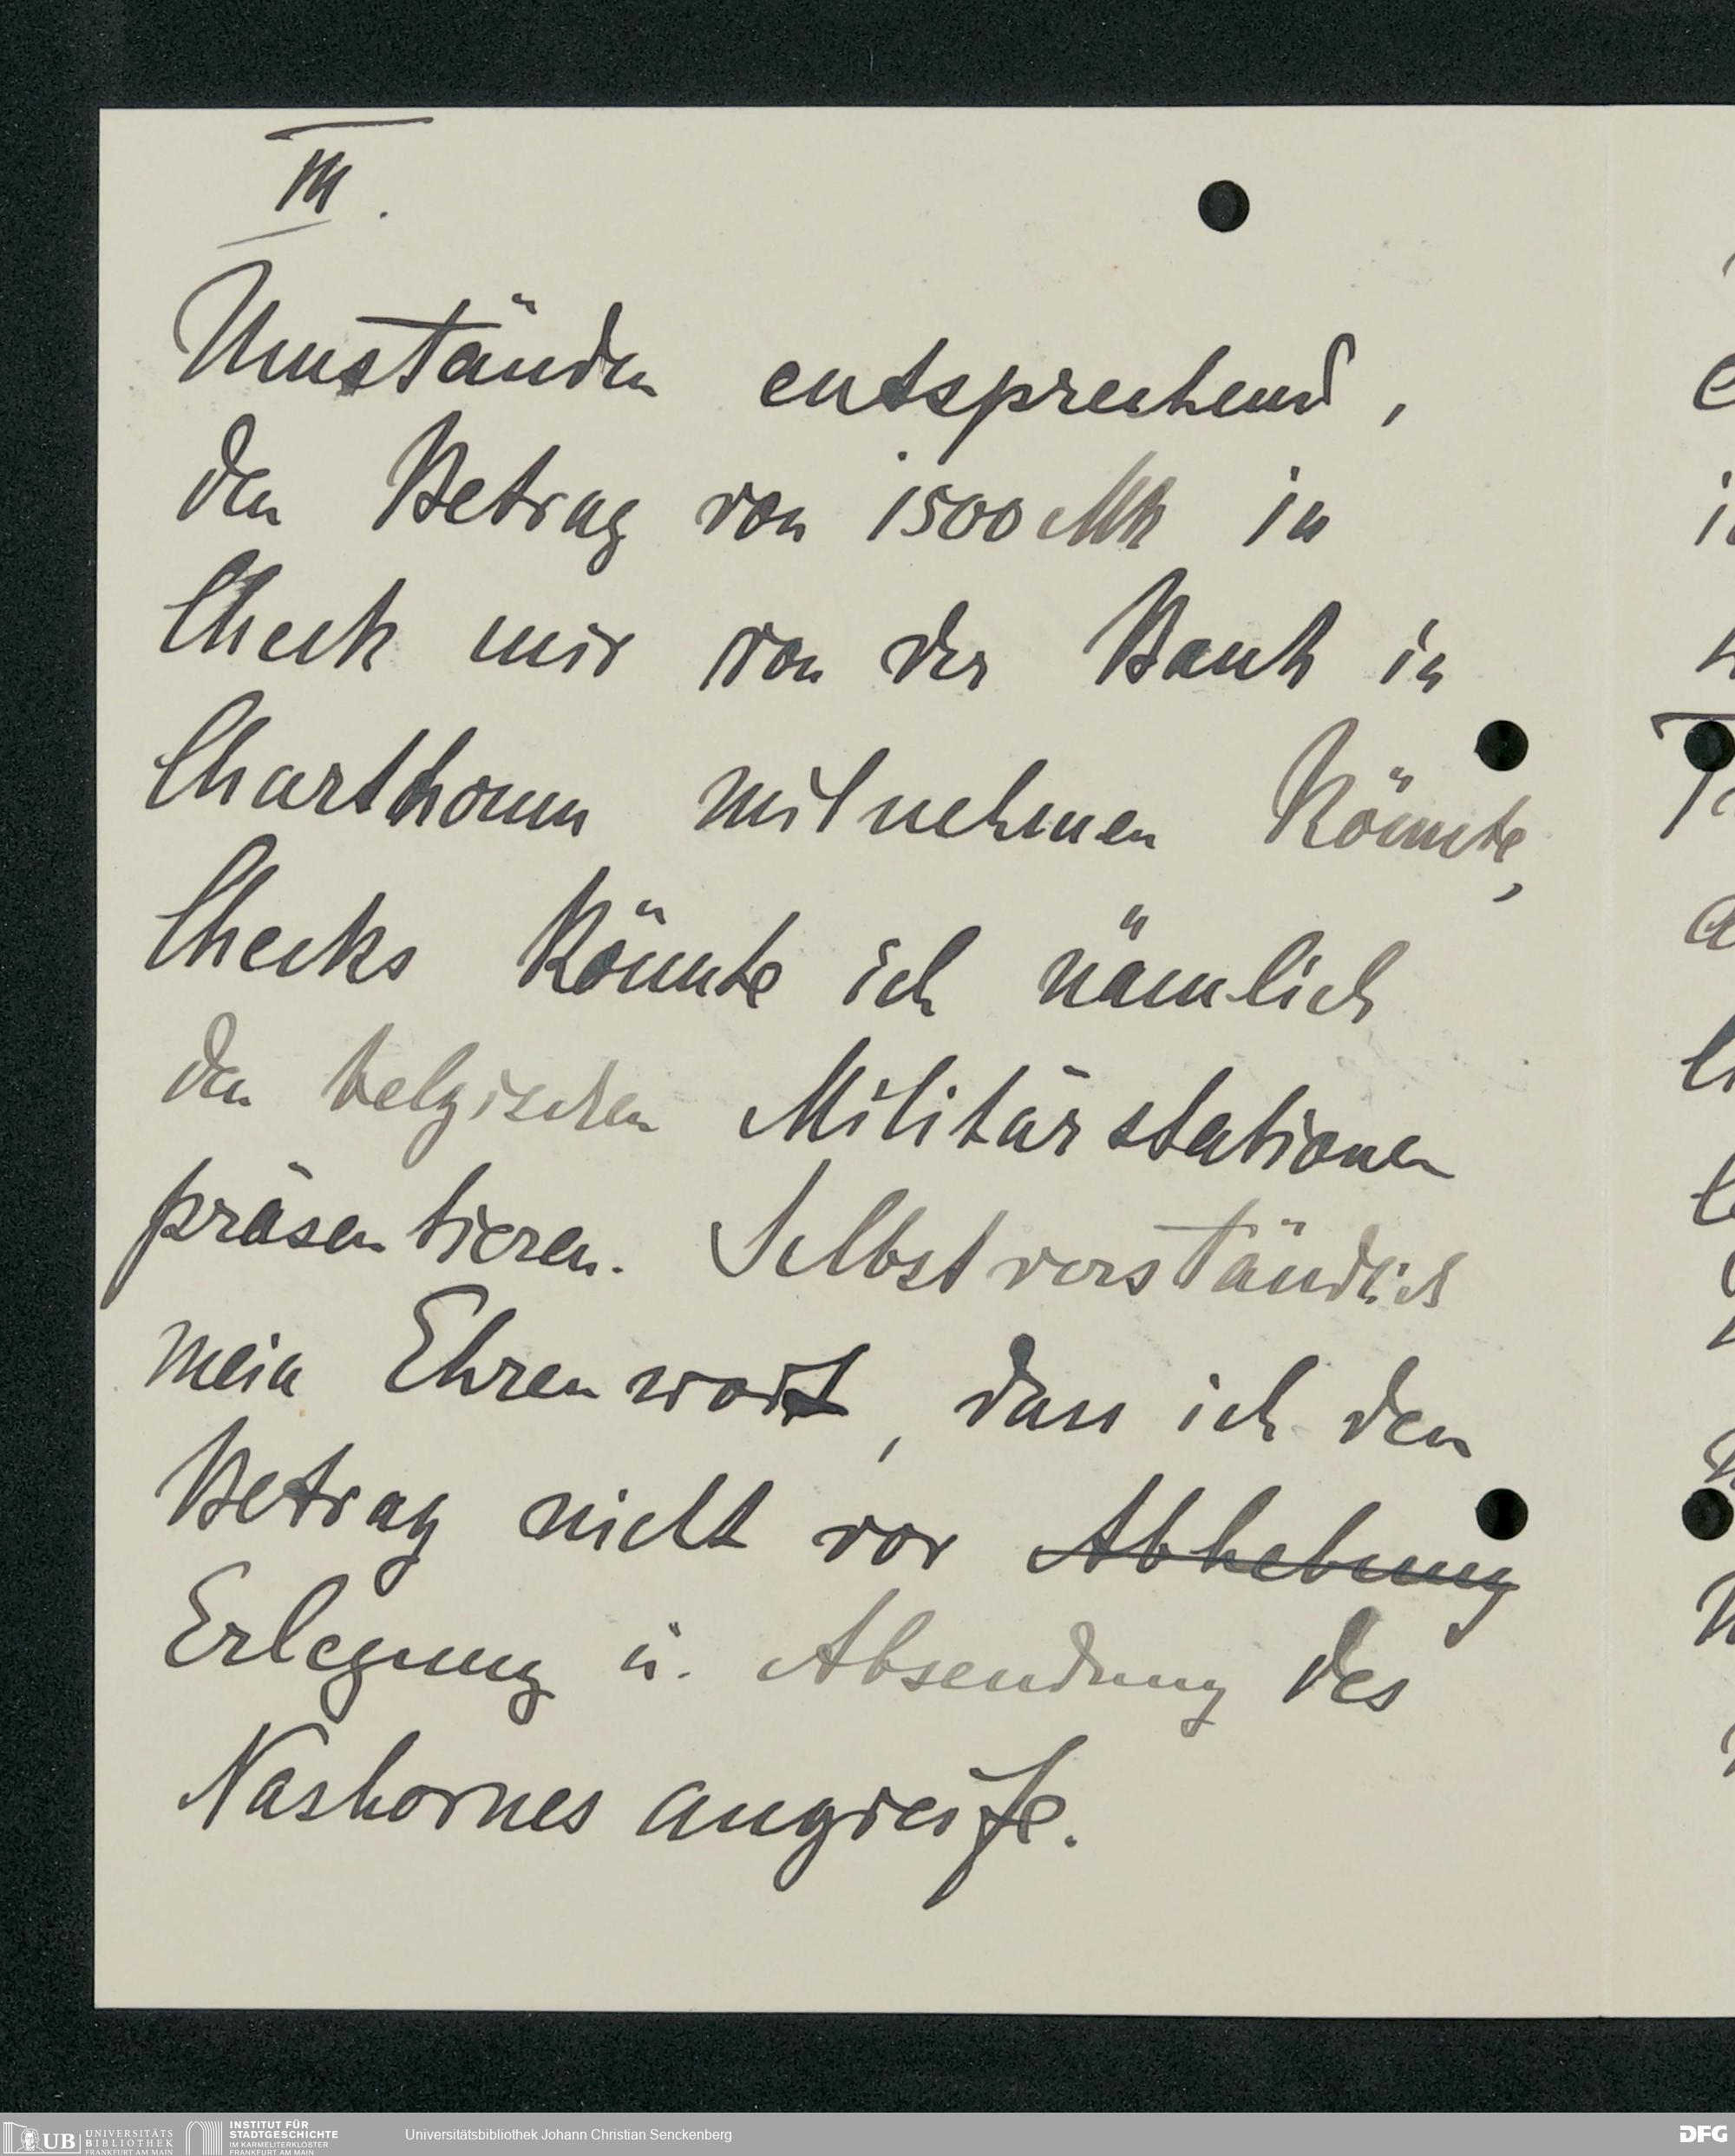 III.
Umständen entsprechend,
den Betrag von 1500 Mk in
Check mir von der Bank in
Charthoum mitnehmen könnte,
Checks könnte ich nämlich
den belgischen Militärstationen
präsentieren. Selbstverständlich
mein Ehrenwort, dass ich den
Betrag nicht vor Abhebung
Erlegung u. Absendung des
Nashornes angreife.
UB UNIVERSITÄTS BIBLIOTHEK FRANKFURT AM MAIN
INSTITUT FÜR STADTGESCHICHTE IM KARMELITERKLOSTER FRANKFURT AM MAIN
Universitätsbibliothek Johann Christian Senckenberg
DFG